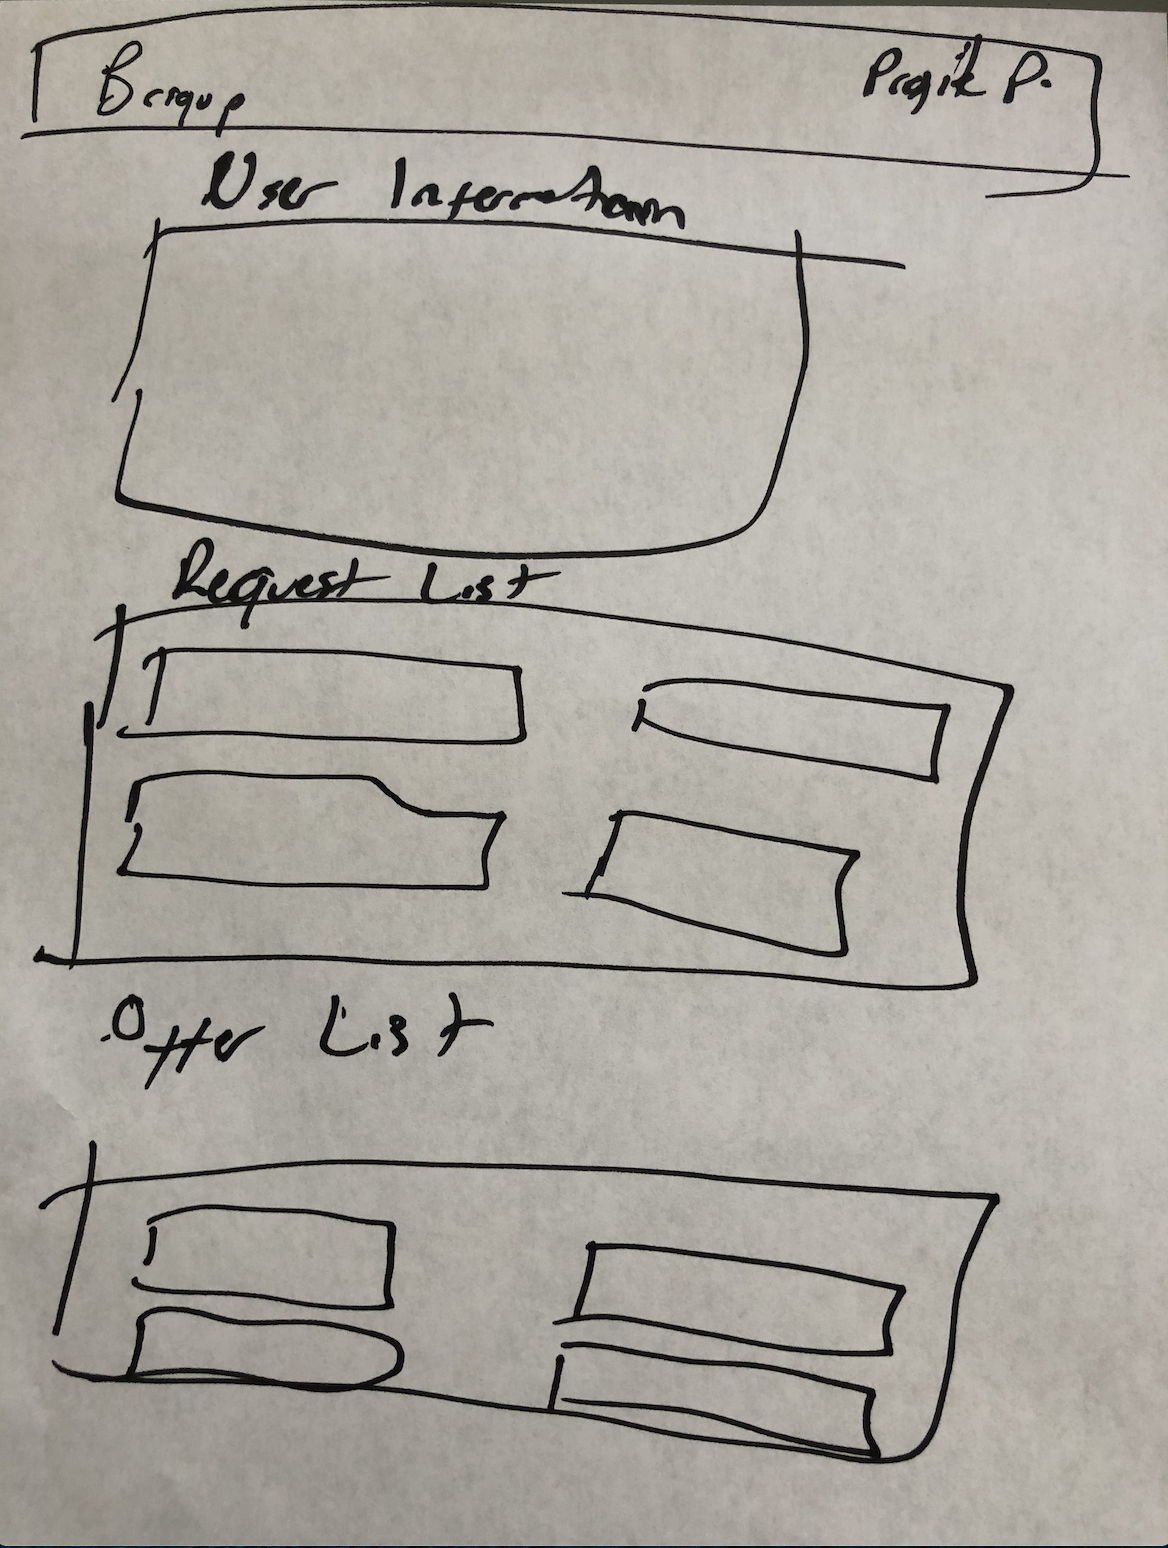 Bringup
Pragik P.
User Information
Request List
Offer List